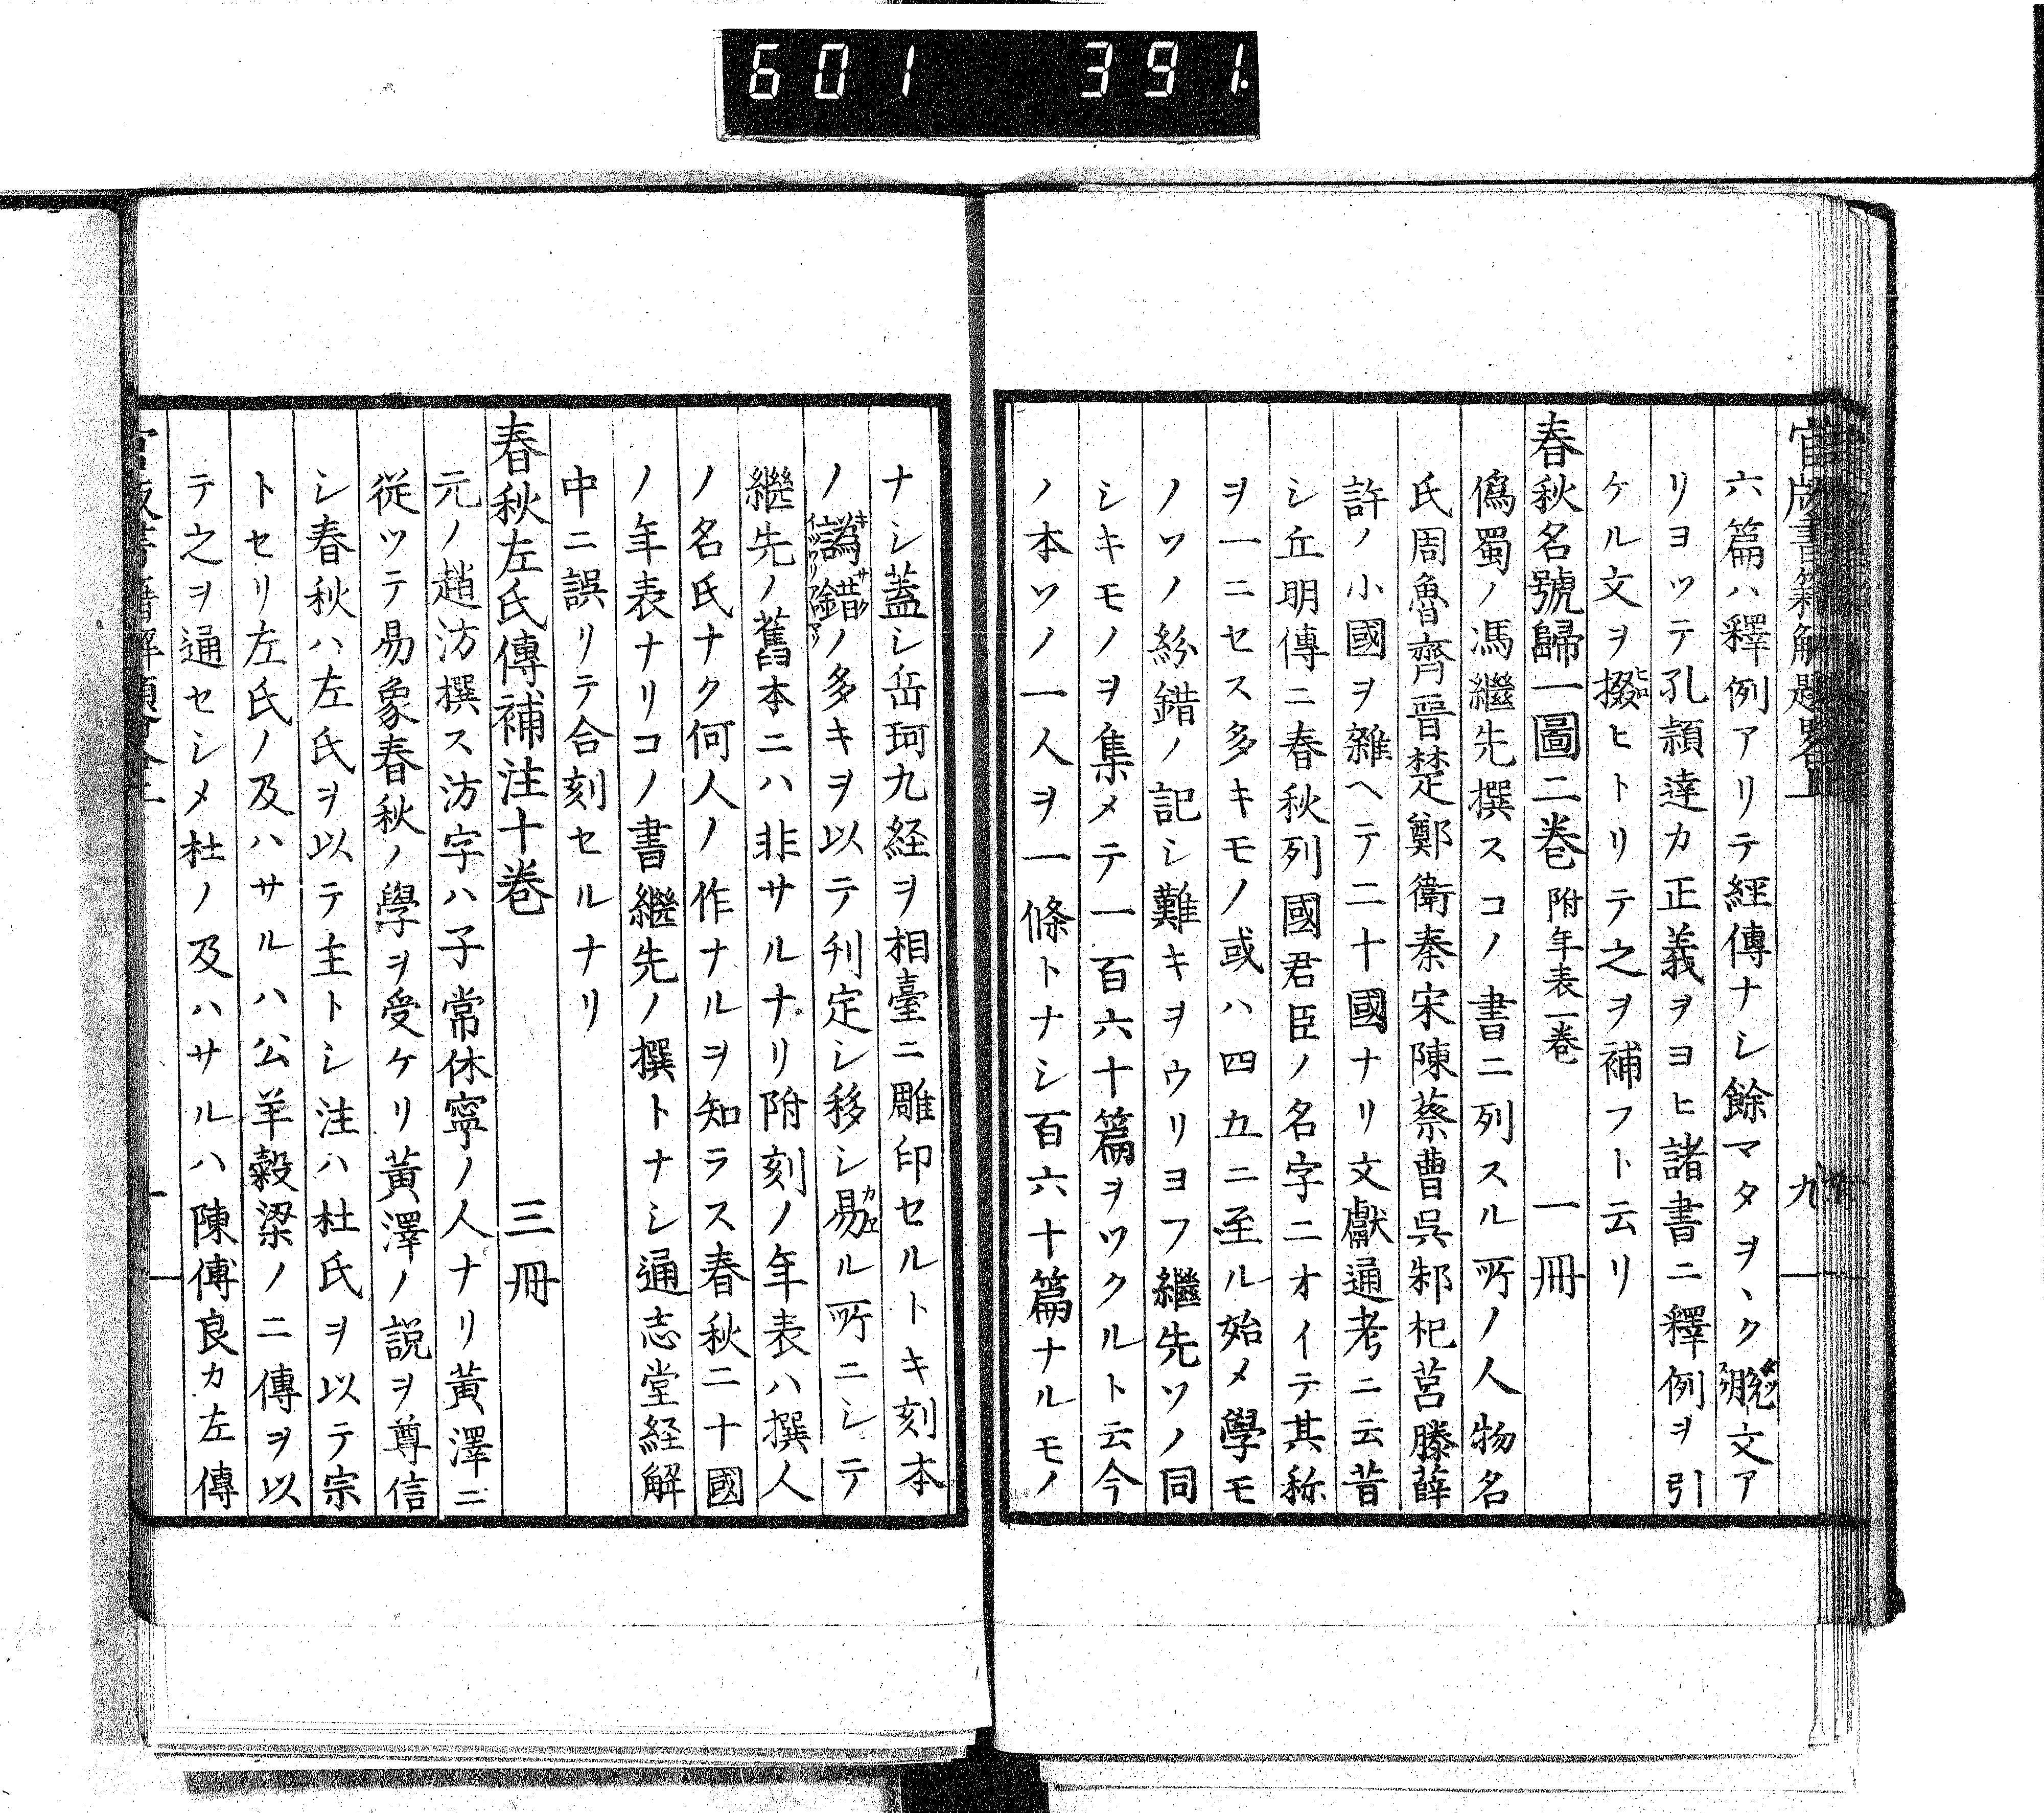 601 391
官版書籍解題畧上 九
六篇ハ釋例アリテ經傳ナシ餘マタヲヽク脱文ア
リヨッテ孔頴達カ正義ヲヨヒ諸書ニ釋例ヲ引
ケル文ヲ掇ヒトリテ之ヲ補フト云リ
春秋名號歸一圖二巻 附年表一巻 一冊
僞蜀ノ馮繼先撰スコノ書ニ列スル所ノ人物名
氏周魯齊晋楚鄭衛秦宋陳蔡曹呉邾杞莒滕薛
許ノ小國ヲ雜ヘテ二十國ナリ文獻通考ニ云昔
シ丘明傳ニ春秋列國君臣ノ名字ニオイテ其称
ヲ一ニセス多キモノ或ハ四五ニ至ル始メ學モ
ノソノ紛錯ノ記シ難キヲウリヨフ繼先ソノ同
シキモノヲ集メテ一百六十篇ヲツクルト云今
ノ本ソノ一人ヲ一條トナシ百六十篇ナルモノ
ナシ蓋シ岳珂九経ヲ相臺ニ雕印セルトキ刻本
ノ譌錯ノ多キヲ以テ刋定シ移シ易ル所ニシテ
繼先ノ舊本ニハ非サルナリ附刻ノ年表ハ撰人
ノ名氏ナク何人ノ作ナルヲ知ラス春秋二十國
ノ年表ナリコノ書繼先ノ撰トナシ通志堂経解
中ニ誤リテ合刻セルナリ
春秋左氏傳補注十巻 三冊
元ノ趙汸撰ス汸字ハ子常休寧ノ人ナリ黄澤ニ
従ッテ易象春秋ノ學ヲ受ケリ黄澤ノ説ヲ尊信
シ春秋ハ左氏ヲ以テ主トシ注ハ杜氏ヲ以テ宗
トセリ左氏ノ及ハサルハ公羊穀梁ノ二傳ヲ以
テ之ヲ通セシメ杜ノ及ハサルハ陳傅良カ左傳